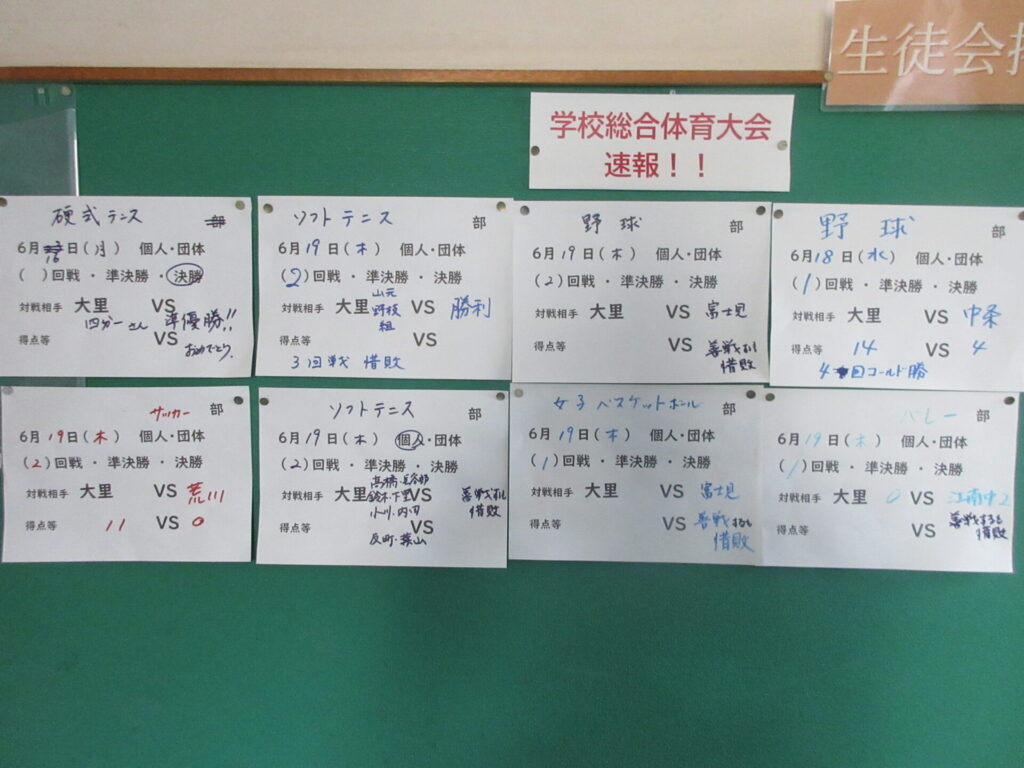 生徒会掲
学校総合体育大会
速報！！
硬式テニス 部
6月16日(月) 個人・団体
( )回戦 ・ 準決勝 ・ 決勝
対戦相手 大里 VS 準優勝!!
得点等 VS おめでとう。
ソフトテニス 部
6月19日(木) 個人・団体
(2)回戦 ・ 準決勝 ・ 決勝
対戦相手 大里 山元 野枝 組 VS 勝利
得点等 VS
3回戦 惜敗
野球 部
6月19日(木) 個人・団体
(2)回戦 ・ 準決勝 ・ 決勝
対戦相手 大里 VS 富士見
得点等 VS 善戦するも
惜敗
野球 部
6月18日(水) 個人・団体
(1)回戦 ・ 準決勝 ・ 決勝
対戦相手 大里 VS 中条
得点等 14 VS 4
4回コールド勝
サッカー 部
6月19日(木) 個人・団体
(2)回戦 ・ 準決勝 ・ 決勝
対戦相手 大里 VS 荒川
得点等 11 VS 0
ソフトテニス 部
6月19日(木) 個人・団体
(2)回戦 ・ 準決勝 ・ 決勝
髙橋・長谷部
対戦相手 大里 鈴木・下里 VS 善戦するも
小川・内田 惜敗
得点等 VS
反町・葉山
女子バスケットボール 部
6月19日(木) 個人・団体
(1)回戦 ・ 準決勝 ・ 決勝
対戦相手 大里 VS 富士見
得点等 VS 善戦するも
惜敗
バレー 部
6月19日(木) 個人・団体
(1)回戦 ・ 準決勝 ・ 決勝
対戦相手 大里 0 VS 江南中2
得点等 VS 善戦するも
惜敗